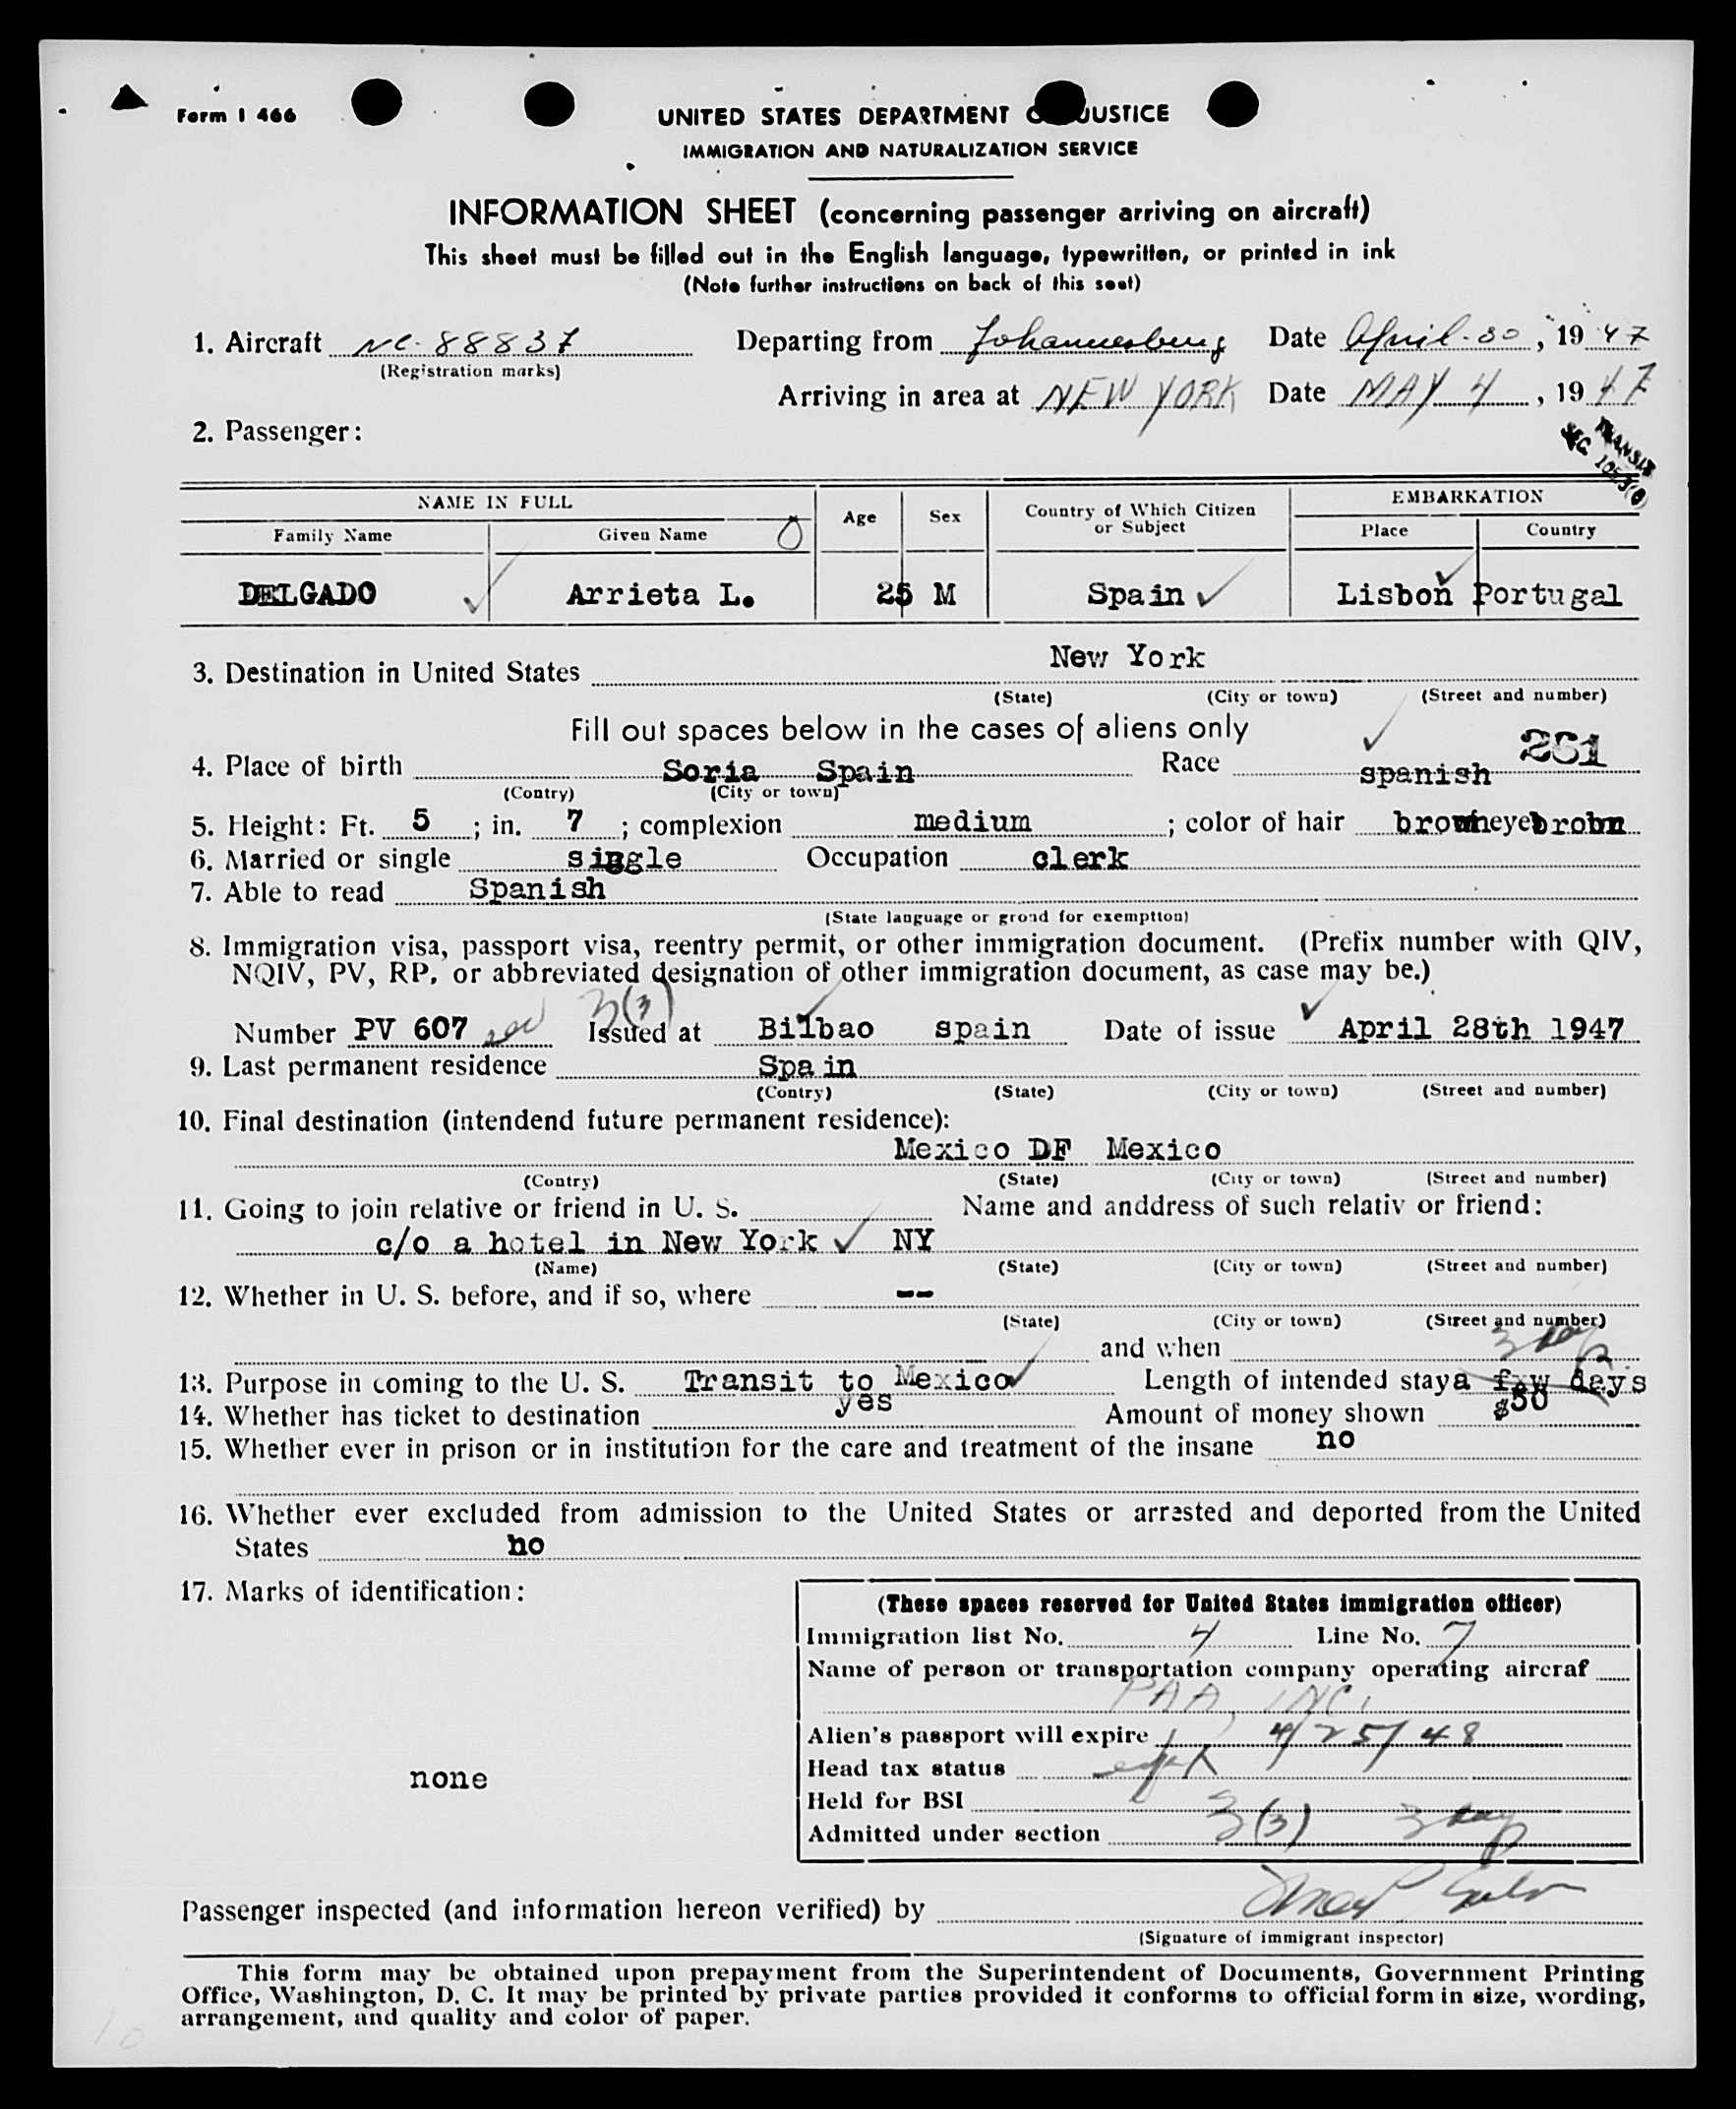 Form I 466
UNITED STATES DEPARTMENT JUSTICE
IMMIGRATION AND NATURALIZATION SERVICE
INFORMATION SHEET (concerning passenger arriving on aircraft)
This sheet must be filled out in the English language, typewritten, or printed in ink
(Note further instructions on back of this seet)
1. Aircraft NC-88837 Departing from Johannesburg Date April 30, 1947
(Registration marks)
Arriving in area at NEW YORK Date MAY 4, 1947
2. Passenger:
TRANSIT
SEC
NAME IN FULL Age Sex Country of Which Citizen or Subject EMBARKATION
Family Name Given Name Place Country
DELGADO Arrieta L. 25 M Spain Lisbon Portugal
3. Destination in United States New York
(State) (City or town) (Street and number)
Fill out spaces below in the cases of aliens only
261
4. Place of birth Soria Spain Race spanish
(Contry) (City or town)
5. Height: Ft. 5 ; in. 7 ; complexion medium ; color of hair brown eyes
6. Married or single single Occupation clerk
7. Able to read Spanish
(State language or grond for exemption)
8. Immigration visa, passport visa, reentry permit, or other immigration document. (Prefix number with QIV,
NQIV, PV, RP, or abbreviated designation of other immigration document, as case may be.)
3(3)
Number PV 607 Issued at Bilbao spain Date of issue April 28th 1947
9. Last permanent residence Spain
(Contry) (State) (City or town) (Street and number)
10. Final destination (intendend future permanent residence):
Mexico DF Mexico
(Contry) (State) (City or town) (Street and number)
11. Going to join relative or friend in U. S. Name and anddress of such relativ or friend:
c/o a hotel in New York NY
(Name) (State) (City or town) (Street and number)
12. Whether in U. S. before, and if so, where --
(State) (City or town) (Street and number)
and when
3 days
13. Purpose in coming to the U. S. Transit to Mexico Length of intended stay a few days
14. Whether has ticket to destination yes Amount of money shown $50
15. Whether ever in prison or in institution for the care and treatment of the insane no
16. Whether ever excluded from admission to the United States or arrested and deported from the United
States no
17. Marks of identification:
none
(These spaces reserved for United States immigration officer)
Immigration list No. 4 Line No. 7
Name of person or transportation company operating aircraf
PAA, INC.
Alien's passport will expire 4/25/48
Head tax status
Held for BSI
Admitted under section 3(3) 3 days
Passenger inspected (and information hereon verified) by
(Signature of immigrant inspector)
This form may be obtained upon prepayment from the Superintendent of Documents, Government Printing
Office, Washington, D. C. It may be printed by private parties provided it conforms to official form in size, wording,
arrangement, and quality and color of paper.
10